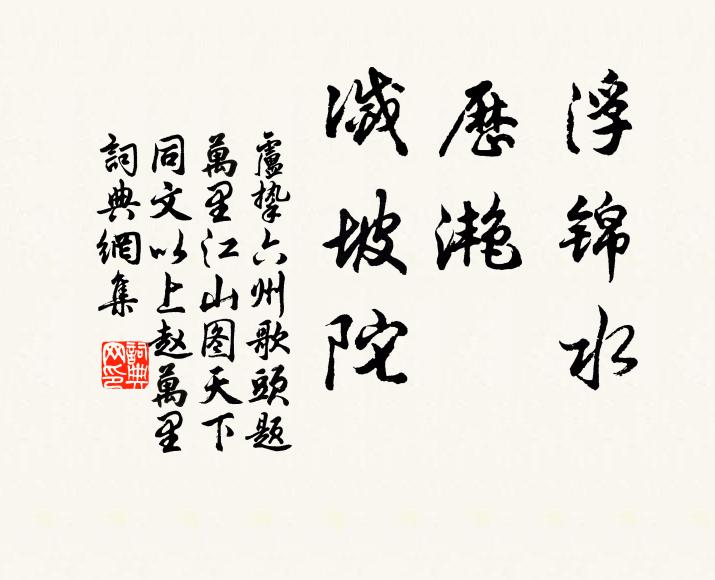 浮锦水
歷滟
滅坡陀
盧挚六州歌頭题
萬里江山图天下
同文以上赵萬里
詞典網集
詞典網印